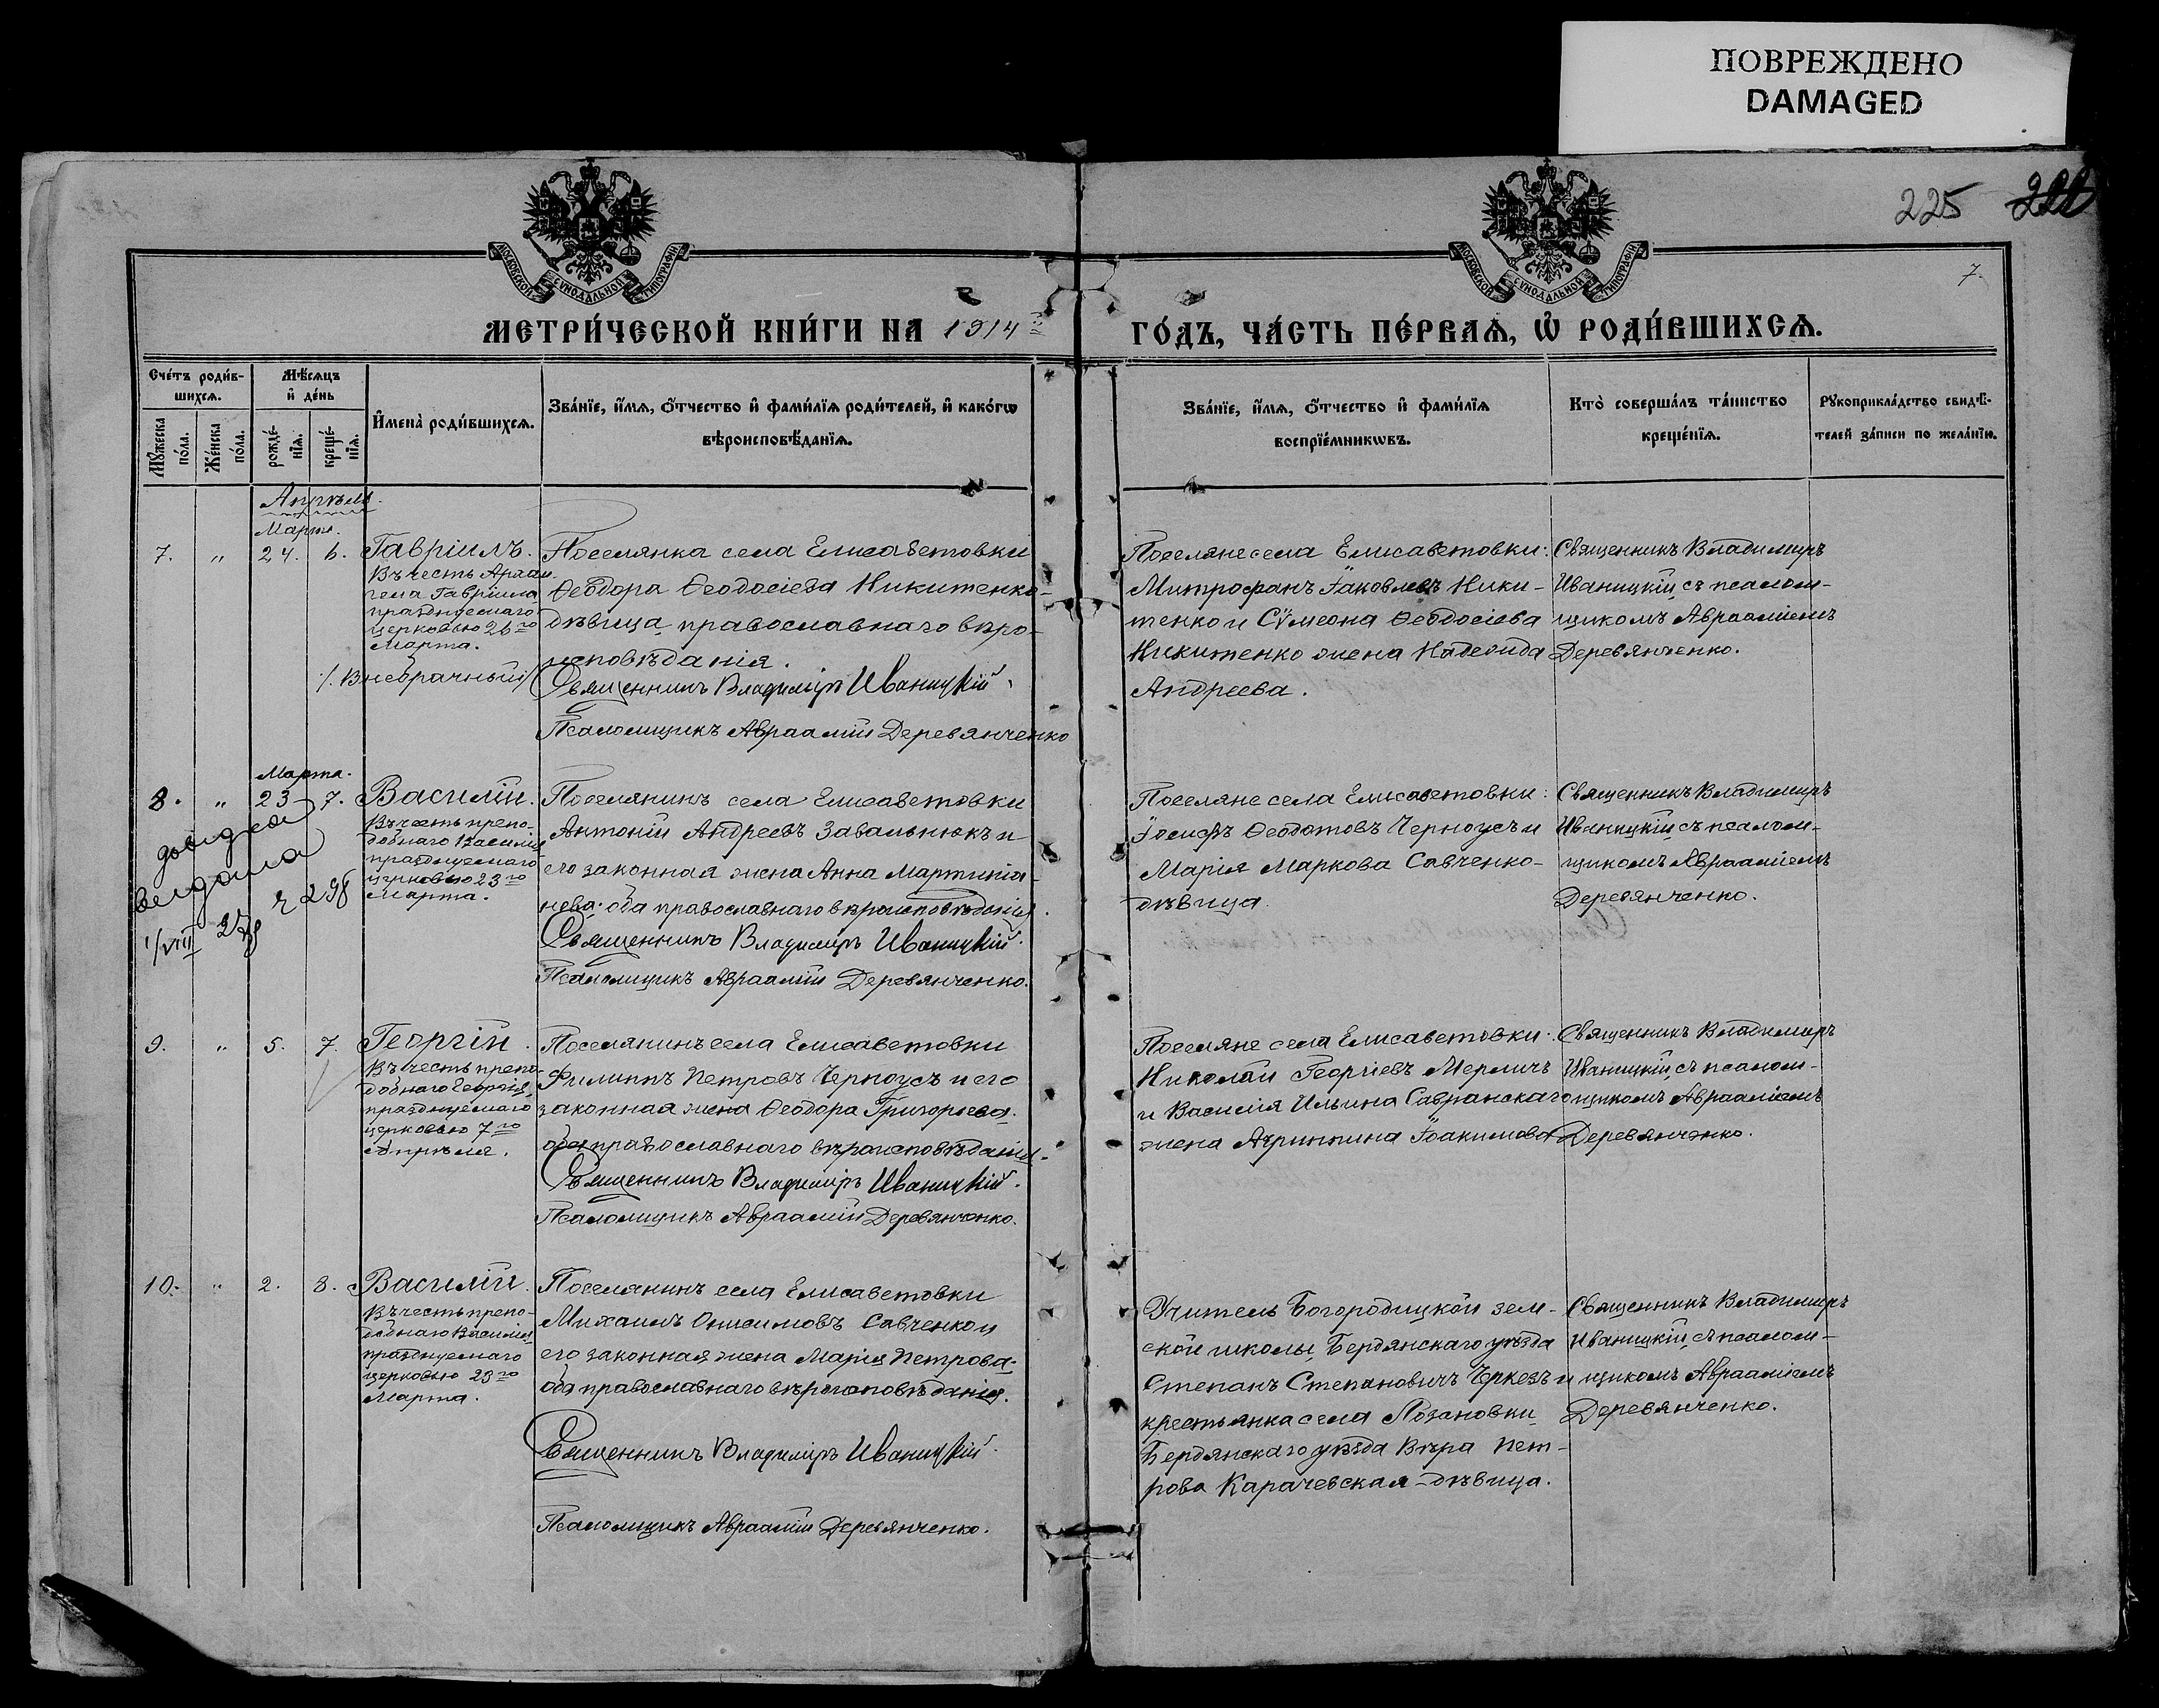 ПОВРЕЖДЕНО
DAMAGED
225
7.
МОСКОВСКОЙ СУНОДАЛЬНОЙ ТИПОГРАФІИ
МОСКОВСКОЙ СУНОДАЛЬНОЙ ТИПОГРАФІИ
МЕТРИ́ЧЕСКОЙ КНИ́ГИ НА 1914
ГО́ДЪ, ЧА́СТЬ ПЕ́РВАѦ, Ѡ҆ РОДИ́ВШИХСѦ.
Сче́тъ роди́в-
шихсѧ.
Мꙋ́жеска по́ла.
Же́нска по́ла.
Мѣ́сѧцъ
и҆ де́нь
рожде́-
нїѧ.
креще́-
нїѧ.
И҆мена̀ роди́вшихсѧ.
Зва́нїе, и҆́мѧ, ѻ҆́тчество и҆ фами́лїѧ роди́телей, и҆ како́гѡ
вѣроисповѣ́данїѧ.
Зва́нїе, и҆́мѧ, ѻ҆́тчество и҆ фами́лїѧ
воспрїе́мникѡвъ.
Кто̀ соверша́лъ та́инство
креще́нїѧ.
Рꙋкоприкла́дство свидѣ́-
телей за́писи по жела́нїю.
Апрѣль.
Марта.
7. " 24. 6. Гавріилъ.
Въ честь Архан-
гела Гавріила
празднуемаго
церковью 26го
Марта.
/. Внебрачный/
Поселянка села Елисаветовки
Ѳеодора Ѳеодосіева Никитенко-
дѣвица, православнаго вѣро-
исповѣданія.
Священникъ Владиміръ Иваницкій.
Псаломщикъ Авраамій Деревянченко
Поселяне села Елисаветовки:
Митрофанъ Іаковлевъ Ники-
тенко и Сѵмеона Ѳеодосіева
Никитенко жена Надежда
Андреева.
Священникъ Владимиръ
Иваницкій, съ псалом-
щикомъ Авраамiемъ
Деревянченко.
Марта.
8. " 23 7. Василій.
довідка
видана
1/VIII
Въ честь препо-
добнаго Василія
празднуемаго
церковью 23го
Марта.
Поселянинъ села Елисаветовки
Антоній Андреевъ Завальнюкъ и
его законная жена Анна Мартиніа-
нева: оба православнаго вѣроисповѣданія.
Священникъ Владиміръ Иваницкій.
Псаломщикъ Авраамій Деревянченко.
Поселяне села Елисаветовки:
Іосифъ Ѳеодотовъ Черноусъ и
Марія Маркова Савченко-
дѣвица.
Священникъ Владимиръ
Иваницкій, съ псалом-
щикомъ Авраамiемъ
Деревянченко.
9. " 5. 7. Георгій.
Въ честь препо-
добнаго Георгія,
празднуемаго
церковью 7го
Апрѣля.
Поселянинъ села Елисаветовки
Филиппъ Петровъ Черноусъ и его
законная жена Ѳеодора Григорьева:
оба православнаго вѣроисповѣданія.
Священникъ Владиміръ Иваницкій.
Псаломщикъ Авраамій Деревянченко.
Поселяне села Елисаветовки:
Николай Георгіевъ Мерличъ
и Василія Ильина Савранскаго
жена Агриппина Іоакимова
Священникъ Владимиръ
Иваницкій, съ псалом-
щикомъ Авраамiемъ
Деревянченко.
10. " 2. 8. Василій.
Въ честь препо-
добнаго Василія
празднуемаго
церковью 23го
Марта.
Поселянинъ села Елисаветовки
Михаилъ Онисимовъ Савченко и
его законная жена Марія Петрова:
оба православнаго вѣроисповѣданія.
Священникъ Владиміръ Иваницкій.
Псаломщикъ Авраамій Деревянченко.
Учитель Богородицкой зем-
ской школы, Бердянскаго уѣзда
Степанъ Степановичъ Черкезъ и
крестьянка села Лозановки
Бердянскаго уѣзда Вѣра Пет-
рова Карачевская-дѣвица.
Священникъ Владимиръ
Иваницкій, съ псалом-
щикомъ Авраамiемъ
Деревянченко.